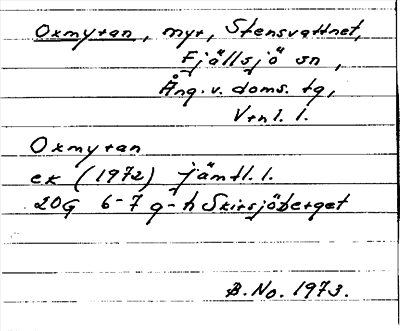 Oxmyran, myr, Stensvattnet,
Fjällsjö sn,
Ång. v. doms. tg,
Vrnl. l.
Oxmyran
ek (1972) Jämtl. l.
20G 6-7 g-h Skirsjöberget
B. No. 1973.